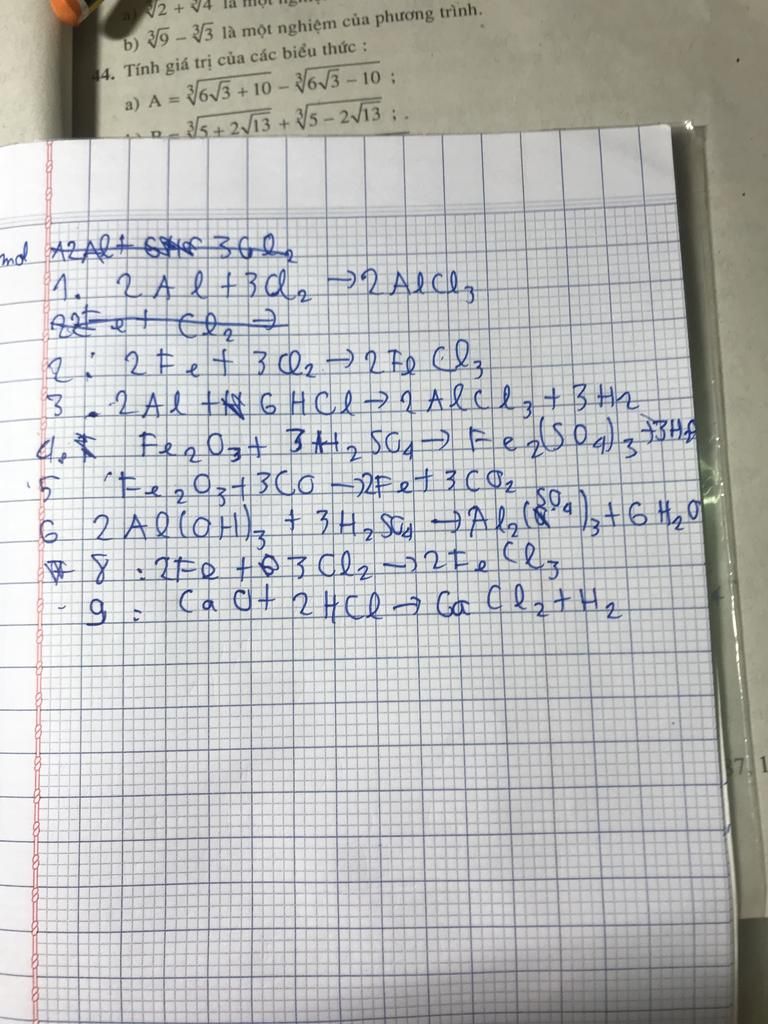 a) ∛2 + ∛4 là một
b) ∛9 − ∛3 là một nghiệm của phương trình.
44. Tính giá trị của các biểu thức :
a) A = ∛(6√3 + 10) − ∛(6√3 − 10) ;
B = ∛(5 + 2√13) + ∛(5 − 2√13) ; .
mol 2Al + 3Cl₂
1. 2Al + 3Cl₂ → 2AlCl₃
2Fe + Cl₂ →
2: 2Fe + 3Cl₂ → 2FeCl₃
3. 2Al + 6HCl → 2AlCl₃ + 3H₂
4. Fe₂O₃ + 3H₂SO₄ → Fe₂(SO₄)₃ + 3H₂
5 Fe₂O₃ + 3CO → 2Fe + 3CO₂
6 2Al(OH)₃ + 3H₂SO₄ → Al₂(SO₄)₃ + 6H₂O
8 : 2Fe + 3Cl₂ → 2FeCl₃
9 : CaO + 2HCl → CaCl₂ + H₂
37, 1